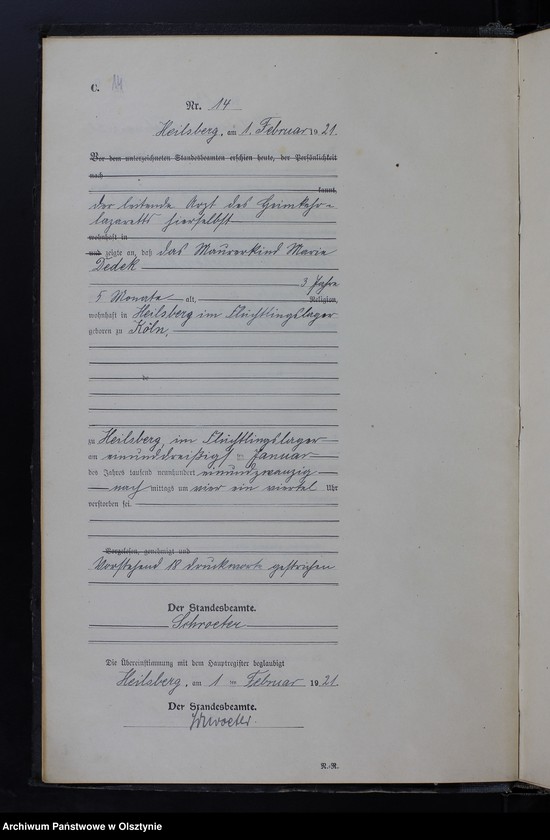 C. 14
Nr. 14
Heilsberg, am 1. Februar 1921.
Vor dem unterzeichneten Standesbeamten erschien heute, der Persönlichkeit
nach
kannt,
der leitende Arzt des Heimkehr-
lazaretts hierselbst
wohnhaft in
und zeigte an, daß das Maurerkind Marie
Dedek
3 Jahre
5 Monate alt, Religion,
wohnhaft in Heilsberg im Flüchtlingslager
geboren zu Köln,
de
zu Heilsberg, im Flüchtlingslager
am einunddreißigsten Januar
des Jahres tausend neunhundert einundzwanzig
nach mittags um vier ein viertel Uhr
verstorben sei.
Vorgelesen, genehmigt und
Vorstehend 18 Druckworte gestrichen
Der Standesbeamte.
Schroeter
Die Übereinstimmung mit dem Hauptregister beglaubigt
Heilsberg, am 1 ten Februar 1921
Der Standesbeamte.
Schroeter.
N.-R.
Archiwum Państwowe w Olsztynie